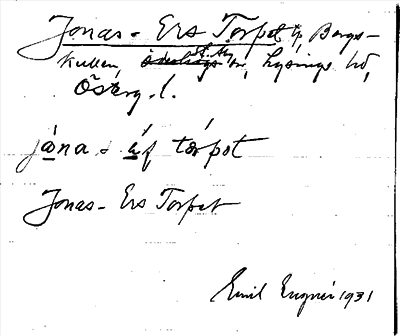 Jonas-Ers Torpet, Bergs-
kullen, sn, Lysings hd,
Österg. l.
jåna s torpet
Jonas-Ers Torpet
Emil Eugnér 1931